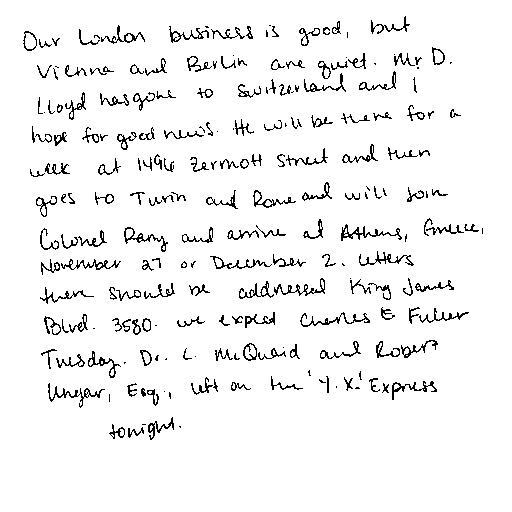 Our London business is good, but
Vienna and Berlin are quiet. Mr. D.
Lloyd has gone to Switzerland and I
hope for good news. He will be there for a
week at 1496 Zermott Street and then
goes to Turin and Rome and will join
Colonel Parry and arrive at Athens, Greece,
November 27 or December 2. Letters
there should be addressed King James
Blvd. 3580. We expect Charles E Fuller
Tuesday. Dr. L. McQuaid and Robert
Ungar, Esq., left on the 'Y.X.' Express
tonight.